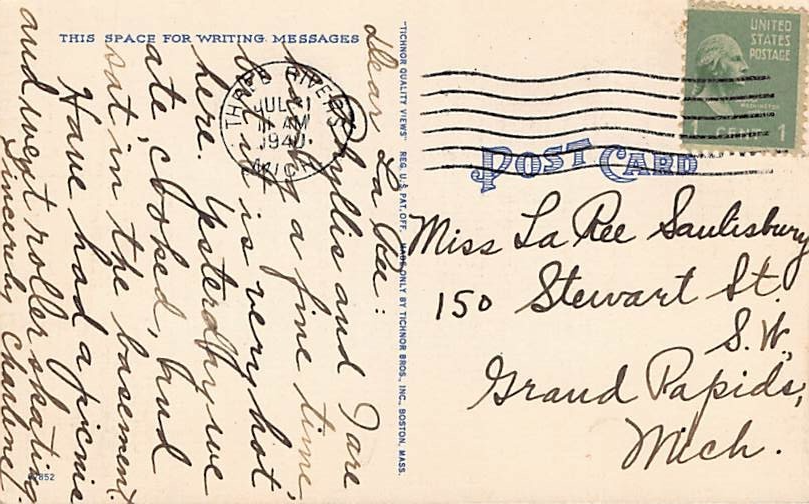 THIS SPACE FOR WRITING MESSAGES
Dear La Ree:
Phyllis and I are
having a fine time,
but it is very hot
here. Ysterday we
ate, cooked, and
sat in the basement.
Have had a picnic
and went roller skating.
Sincerely Charlene.
"TICHNOR QUALITY VIEWS" REG. U.S. PAT. OFF. MADE ONLY BY TICHNOR BROS., INC., BOSTON, MASS.
THREE RIVERS
JUL
11 AM
1940
MICH.
UNITED
STATES
POSTAGE
WASHINGTON
1 CENT 1
POST CARD
Miss La Ree Saulisbury
150 Stewart St.
S.W.
Grand Rapids,
Mich.